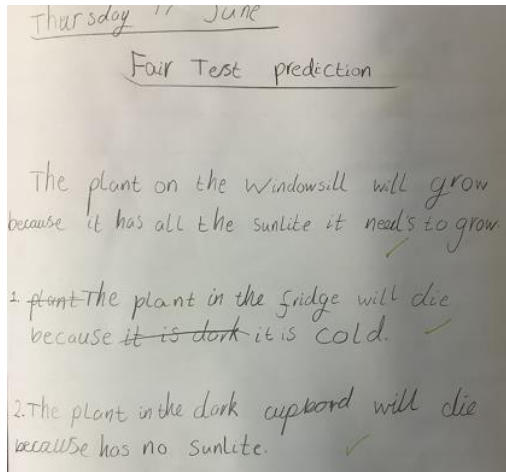 Thursday 17 June
Fair Test prediction
The plant on the windowsill will grow
because it has all the sunlite it need's to grow.
1. plant The plant in the fridge will die
because it is dark it is cold.
2. The plant in the dark cupbord will die
because has no sunlite.